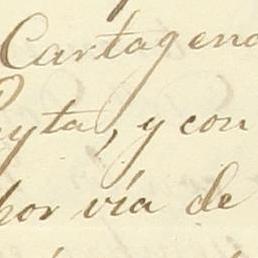 Cartagena
Peyta, y con
por vía de